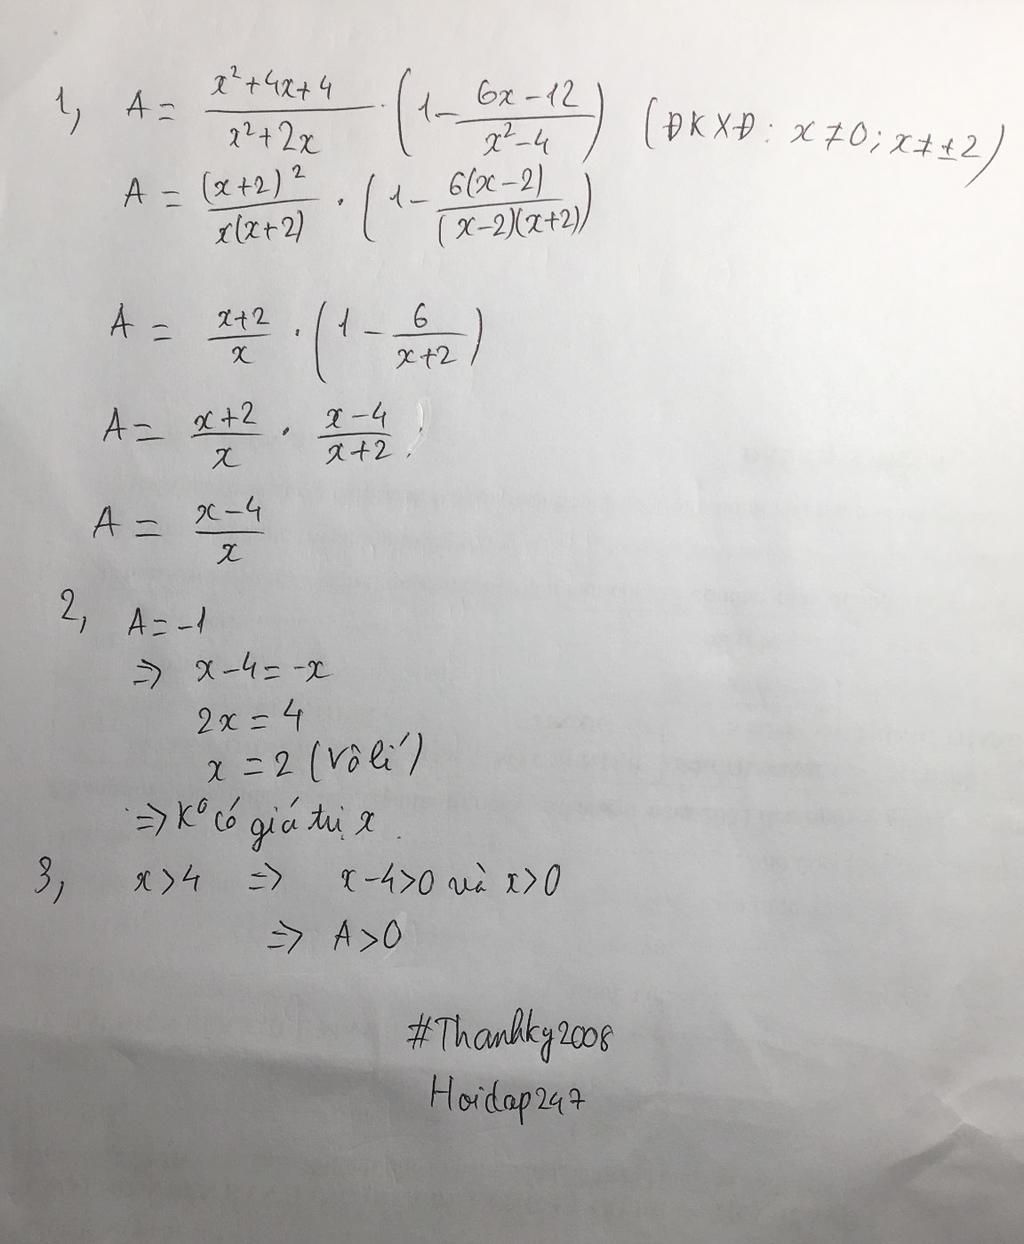 1, A = \frac{x^2+4x+4}{x^2+2x} \cdot \left(1 - \frac{6x-12}{x^2-4}\right) (ĐKXĐ: x ≠ 0; x ≠ ±2)
A = \frac{(x+2)^2}{x(x+2)} \cdot \left(1 - \frac{6(x-2)}{(x-2)(x+2)}\right)
A = \frac{x+2}{x} \cdot \left(1 - \frac{6}{x+2}\right)
A = \frac{x+2}{x} \cdot \frac{x-4}{x+2}
A = \frac{x-4}{x}
2, A = -1
⇒ x - 4 = -x
2x = 4
x = 2 (vô lí)
⇒ K° có giá trị x.
3, x > 4 ⇒ x - 4 > 0 và x > 0
⇒ A > 0
#Thanhky2008
Hoidap247